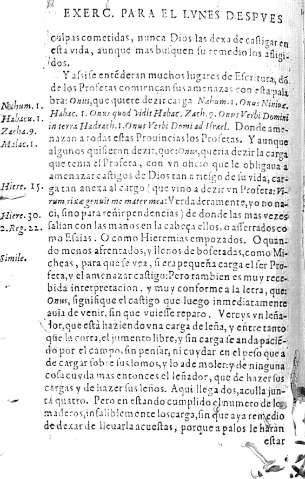 EXERC. PARA EL LVNES DESPVES
culpas cometidas, nunca Dios las dexa de castigar en
esta vida, aunque mas busquen su remedio los afligi-
dos.
Y assi se entēderan muchos lugares de Escritura, dō
de los Profetas comiençan sus amenazas con esta pala
bra: Onus, que quiere dezir carga Nahum. 1. Onus Niniuæ.
Habac. 1. Onus quod vidit Habac. Zach. 9. Onus Verbi Domini
in terra Hadrach. 1. Onus Verbi Domini ad Israel. Donde ame-
nazan a todas estas Prouincias los Profetas. Y aunque
algunos quisieron dezir, que Onus, queria dezir la carga
que tenia el Profeta, con vn oficio que le obligaua a
amenazar castigos de Dios tan a riesgo de su vida, car-
ga tan anexa al cargo (que vino a dezir vn Profeta: Vi-
rum rixæ genuit me mater mea: Verdaderamente, yo no na-
ci, sino para reñir pendencias) de donde las mas vezes
salian con las manos en la cabeça ellos, o asserrados co
mo Esaias. O como Hieremias empozados. O quan-
do menos afrentados, y llenos de bofetadas, como Mi-
cheas, para que se vea, si era pequeña carga el ser Pro-
feta, y el amenazar castigo: Pero tambien es muy rece-
bida interpretacion, y muy conforme a la letra, que:
Onus, signifique el castigo que luego inmediatamente
auia de venir, sin que vuiesse reparo. Vereys vn leña-
dor, que està haziendo vna carga de leña, y entre tanto
que la corta, el jumento libre, y sin carga se anda paciē-
do por el campo, sin pensar, ni cuydar en el peso que a
de cargar sobre sus lomos, y lo a de moler: y de ninguna
cosa cuyda mas entonces el leñador, que de hazer sus
cargas y de hazer sus leños. Aqui llega dos, aculla jun-
ta quatro. Pero en estando cumplido el numero de los
maderos, infaliblemente los carga, sin que aya remedio
de dexar de lleuarla acuestas, porque a palos le haran
estar
Nahum. 1.
Habacu. 1.
Zacha. 9.
Malac. 1.
Hiere. 15.
Hiere. 30.
2. Reg. 22.
Simile.